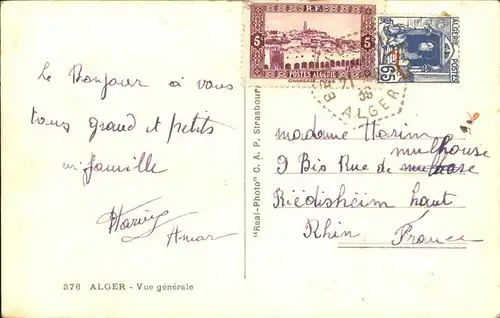 Le Bonjour a vous
tous grand et petits
en famille
Harim
Amar
376 ALGER - Vue générale
"Real-Photo" C. A. P. Strasbourg
5c R.F. 5c
POSTES ALGÉRIE
ALGERIE
POSTES
65c
38
ALGER
madame Harim
mulhouse
9 Bis Rue de
Riedisheim haut
Rhin France